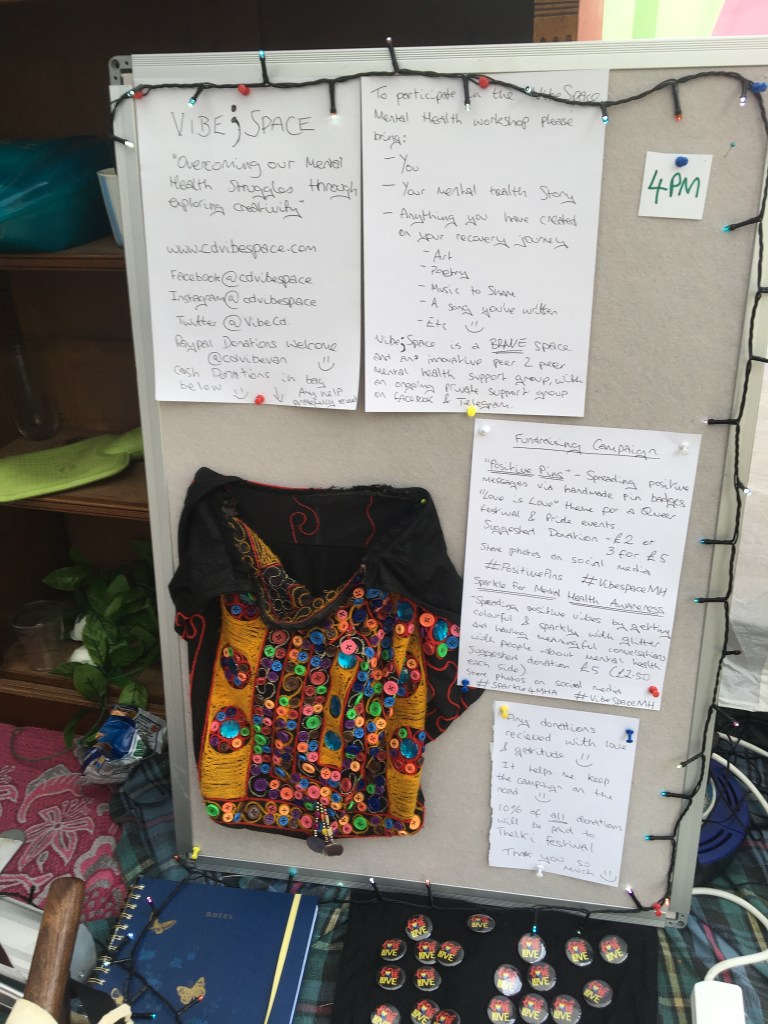 VIBE;SPACE
"Overcoming our Mental
Health Struggles through
exploring creativity"
www.cdvibespace.com
Facebook@cdvibespace
Instagram@cdvibespace
Twitter @VibeCd
Paypal Donations welcome
@cdvibevan
Cash Donations in bag
below ☺ ↓ Any help
gratefully
To participate in the VibeSPACE
Mental Health workshop please
bring:
- You
- Your mental health Story
- Anything you have created
on your recovery journey
- Art
- Poetry
- Music to Share
- A song you've written
- Etc ☺
Vibe;Space is a BRAVE space
and an innovative peer 2 peer
mental health support group, with
an ongoing private support group
on facebook & Telegram.
4PM
Fundraising Campaign
"Positive Pins" - Spreading positive
messages via handmade pin badges
"Love is Love" theme for a Queer
festival & Pride events.
Suggested Donation - £2 or
3 for £5
Share photos on social media
#PositivePins #VibespaceMH
Sparkle for Mental Health Awareness
- Spreading positive vibes by getting
colourful & sparkly with glitter
and having meaningful conversations
with people about mental health
Suggested donation £5 (£2.50
each side)
Share photos on social media
#Sparkle4MHA #VibeSpaceMH
Any donations
recieved with love
& gratitude ☺
It helps me keep
the campaign on the
road ☺
10% of all donations
will be paid to
festival
Thank you so
much ☺
NOTES
LOVE
LOVE
LOVE
LOVE
LOVE
LOVE
LOVE
LOVE